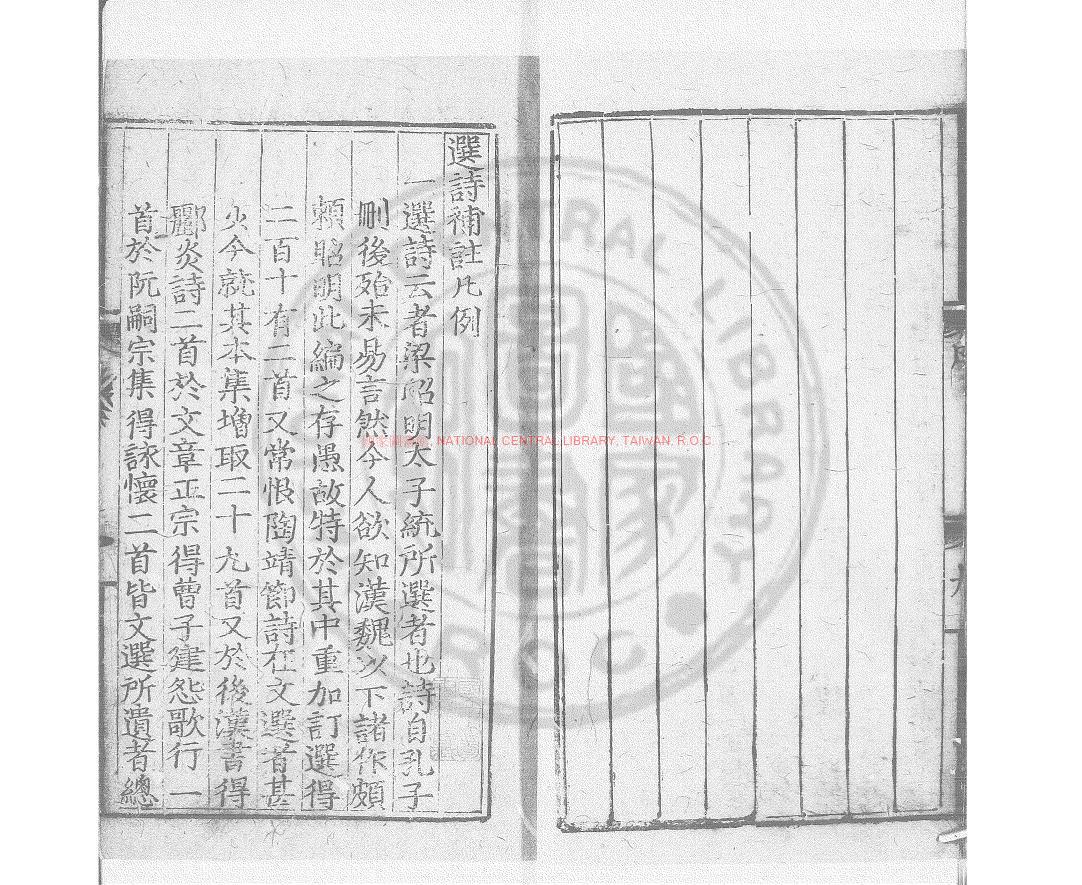 選詩補註凡例
一選詩云者梁昭明太子統所選者也詩自孔子
刪後殆未易言然今人欲知漢魏以下諸作頗
賴昭明此編之存愚故特於其中重加訂選得
二百十有二首又常恨陶靖節詩在文選者甚
少今就其本集增取二十九首又於後漢書得
酈炎詩二首於文章正宗得曹子建怨歌行一
首於阮嗣宗集得詠懷二首皆文選所遺者總
國家圖書館, NATIONAL CENTRAL LIBRARY, TAIWAN, R.O.C
CENTRAL LIBRARY
R.O.C